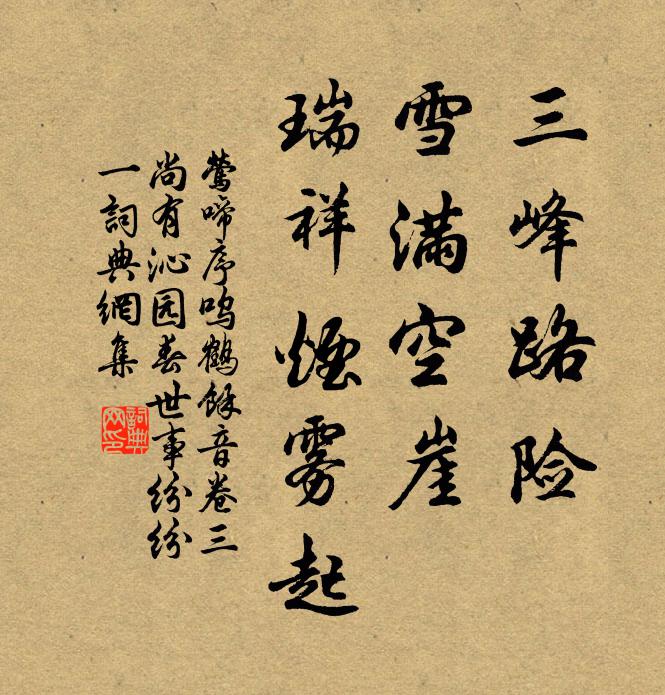 三峰路险
雪满空崖
瑞祥煙雾起
鶯啼序鸣鶴餘音卷三
尚有沁园春世事纷纷
一詞典網集
詞典
网印